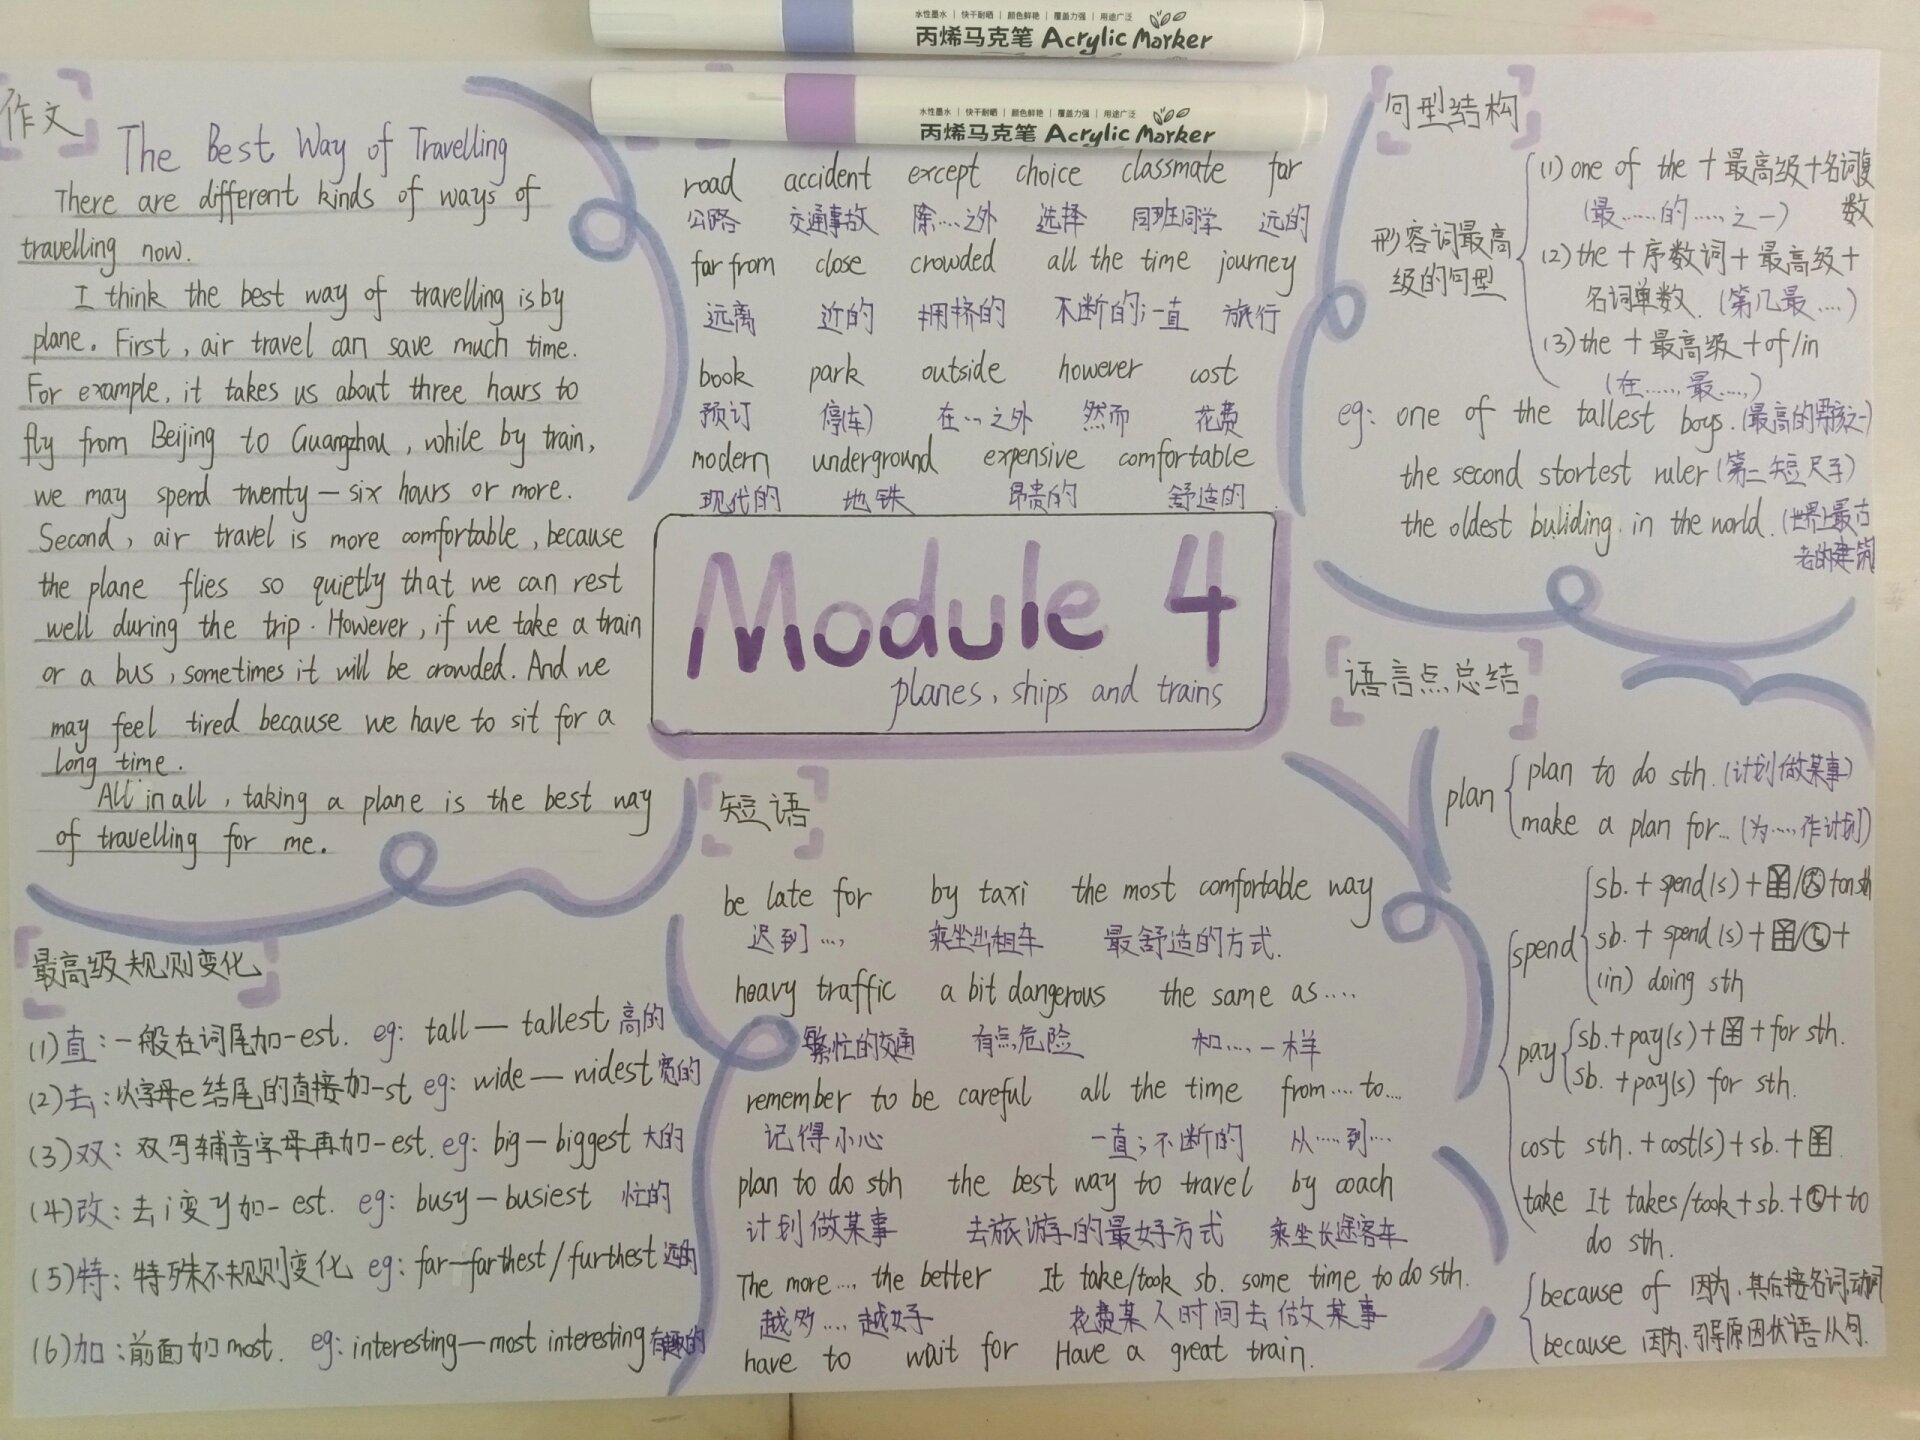 水性墨水 | 快干耐晒 | 颜色鲜艳 | 覆盖力强 | 用途广泛
丙烯马克笔 Acrylic Marker
水性墨水 | 快干耐晒 | 颜色鲜艳 | 覆盖力强 | 用途广泛
丙烯马克笔 Acrylic Marker
作文
The Best Way of Travelling
There are different kinds of ways of
travelling now.
I think the best way of travelling is by
plane. First, air travel can save much time.
For example, it takes us about three hours to
fly from Beijing to Guangzhou, while by train,
we may spend twenty—six hours or more.
Second, air travel is more comfortable, because
the plane flies so quietly that we can rest
well during the trip. However, if we take a train
or a bus, sometimes it will be crowded. And we
may feel tired because we have to sit for a
long time.
All in all, taking a plane is the best way
of travelling for me.
road accident except choice classmate far
公路 交通事故 除……之外 选择 同班同学 远的
far from close crowded all the time journey
远离 近的 拥挤的 不断的;一直 旅行
book park outside however cost
预订 停(车) 在…之外 然而 花费
modern underground expensive comfortable
现代的 地铁 昂贵的 舒适的
Module 4
planes, ships and trains
句型结构
形容词最高
级的句型
(1) one of the + 最高级 + 名词复
数
(最……的……之一)
(2) the + 序数词 + 最高级 +
名词单数. (第几最……)
(3) the + 最高级 + of/in
(在……,最……)
eg: one of the tallest boys. (最高的男孩之一)
the second stortest ruler (第二短尺子)
the oldest buliding. in the world. (世界上最古
老的建筑
语言点总结
plan
plan to do sth. (计划做某事)
make a plan for... (为……作计划)
spend
sb. + spend(s) + ¥/ + on sth
sb. + spend(s) + ¥/ +
(in) doing sth
pay
sb. + pay(s) + ¥ + for sth.
sb. + pay(s) for sth.
cost sth. + cost(s) + sb. + ¥.
take It takes/took + sb. + + to
do sth.
because of 因为,其后接名词,动词
because 因为,引导原因状语从句.
短语
be late for by taxi the most comfortable way
迟到…, 乘坐出租车 最舒适的方式.
heavy traffic a bit dangerous the same as....
繁忙的交通 有点危险 和……一样
remember to be careful all the time from.... to...
记得小心 一直;不断的 从……到…
plan to do sth the best way to travel by coach
计划做某事 去旅游的最好方式 乘坐长途客车
The more.... the better It take/took sb. some time to do sth.
越多…. 越好 花费某人时间去做某事
have to wait for Have a great train.
最高级规则变化
(1)直:一般在词尾加-est. eg: tall — tallest 高的
(2)去:以字母e结尾的直接加-st eg: wide — widest 宽的
(3)双:双写辅音字母再加-est. eg: big — biggest 大的
(4)改:去i变y加-est. eg: busy — busiest 忙的
(5)特:特殊不规则变化 eg: far — farthest / furthest 远的
(6)加:前面加most. eg: interesting — most interesting 有趣的